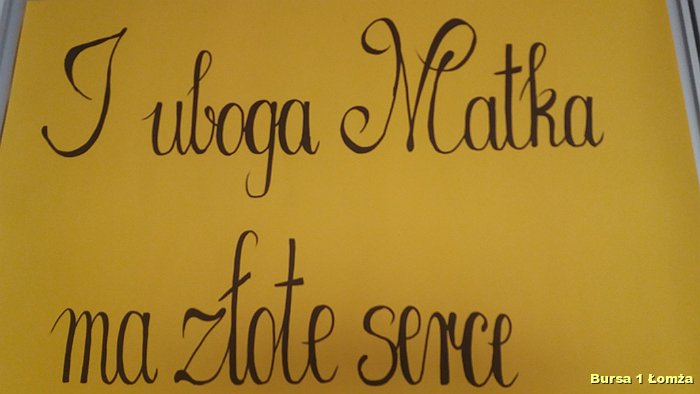 I uboga Matka
ma złote serce
Bursa 1 Łomża